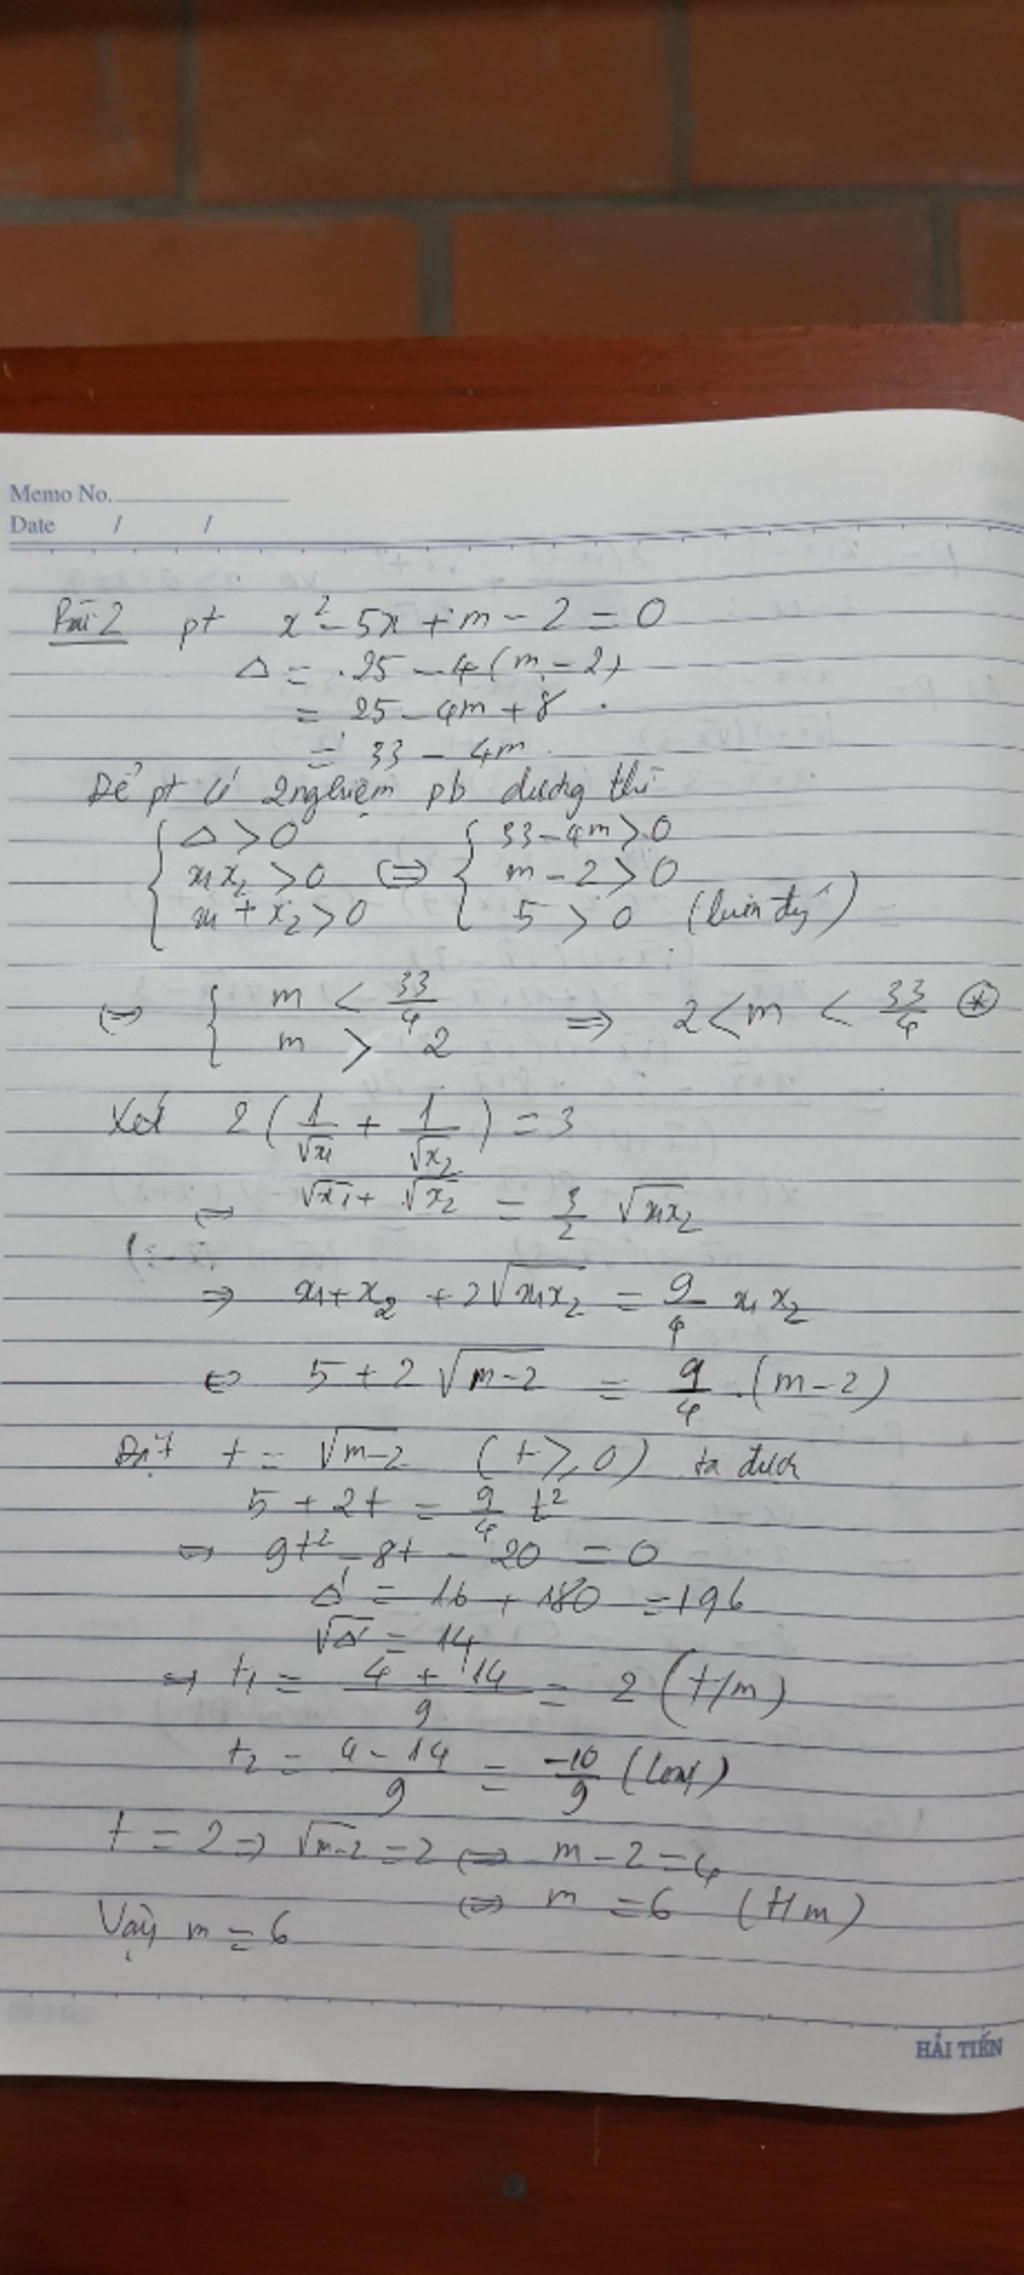 Memo No.
Date / /
Bài 2 pt x² - 5x + m - 2 = 0
Δ = 25 - 4(m - 2)
= 25 - 4m + 8
= 33 - 4m
Để pt có 2 nghiệm pb dương thì
{ Δ > 0 { 33 - 4m > 0
x₁x₂ > 0 ⇔ m - 2 > 0
x₁ + x₂ > 0 5 > 0 (luôn đg)
⇔ { m < 33/4 ⇒ 2 < m < 33/4 (*)
m > 2
Xét 2(1/√x₁ + 1/√x₂) = 3
⇔ √x₁ + √x₂ = 3/2 √x₁x₂
⇒ x₁ + x₂ + 2√x₁x₂ = 9/4 x₁x₂
⇔ 5 + 2√m-2 = 9/4 .(m - 2)
Đặt t = √m-2 (t ≥ 0) ta được
5 + 2t = 9/4 t²
⇔ 9t² - 8t - 20 = 0
Δ' = 16 + 180 = 196
√Δ' = 14
⇒ t₁ = 4 + 14/9 = 2 (t/m)
t₂ = 4 - 14/9 = -10/9 (loại)
t = 2 ⇒ √m-2 = 2 ⇔ m - 2 = 4
⇔ m = 6 (t/m)
Vậy m = 6
HẢI TIẾN